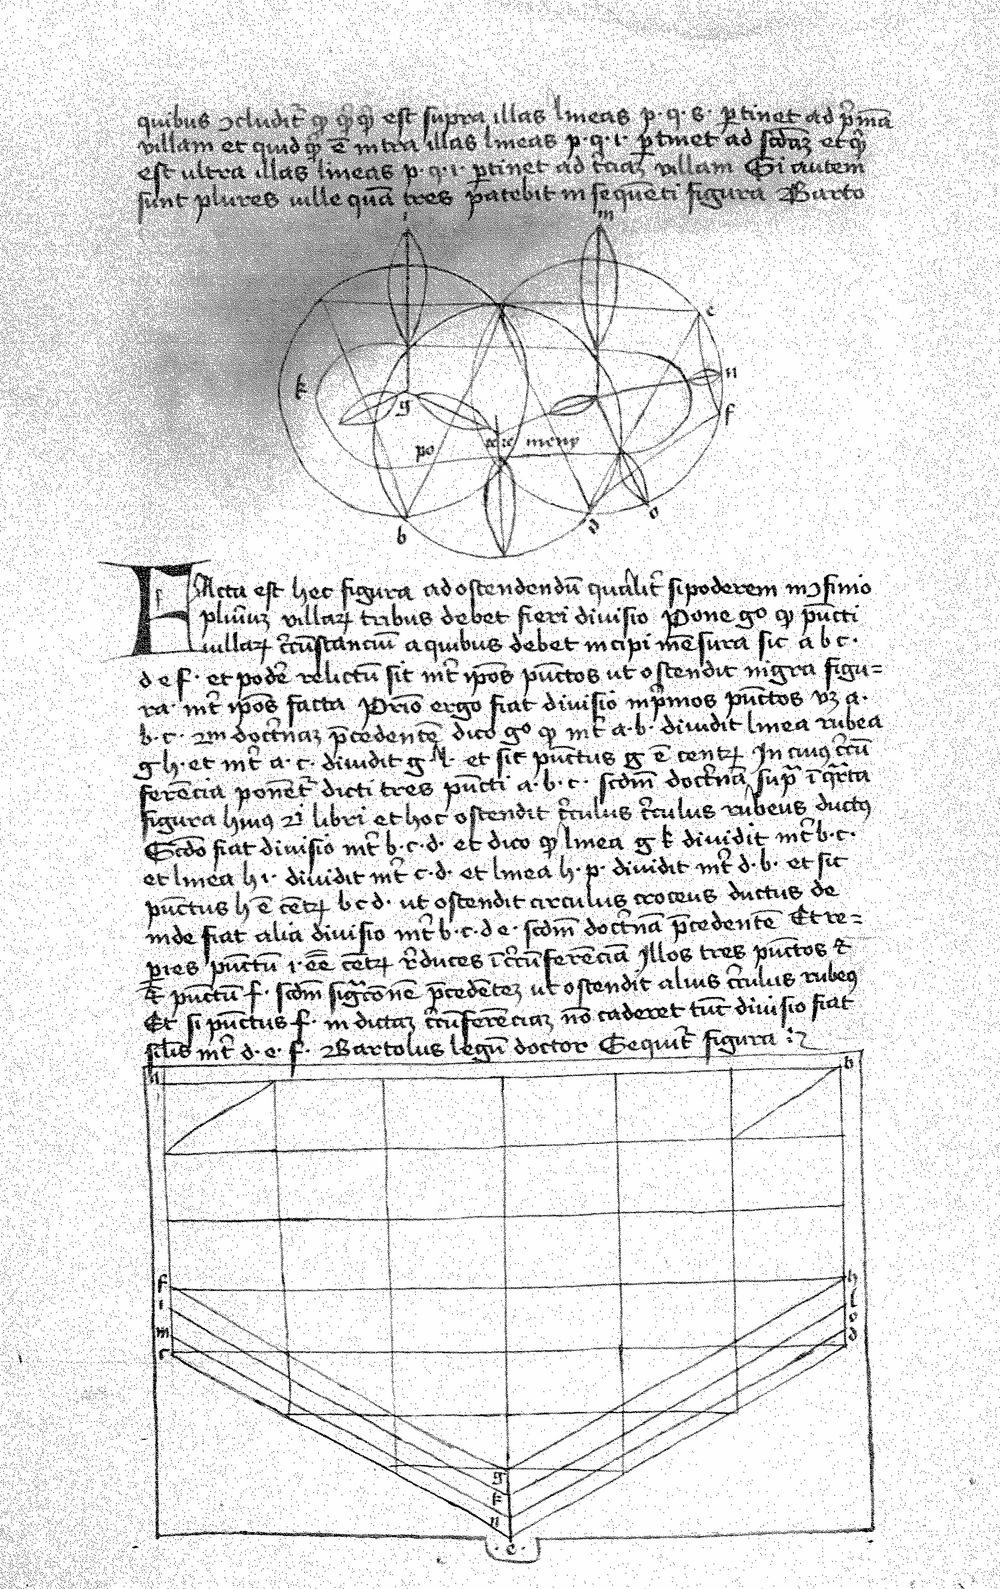 quibus ↄcludit᷑ ꝙ q̊ꝙ est supra illas lineas p. q. s. ꝑtinet ad p̊mā
villam et quid ꝙ ē intra illas lineas p. q. r. ꝑtinet ad scd̄aꝫ et ꝙ
est ultra illas lineas p. q. r. ꝑtinet ad t̄ciaꝫ villam Si autem
sunt plures ville quā tres p̄atebit in sequēti figura Barto
m
c
k
n
g
f
po
b
d
o
FActa est hec figura ad ostendendū qualit᷑ si poderem in ↄfinio
pluriuꝫ villaꝝ tribus debet fieri divisio Pone gº ꝙ pūcti
villaꝝ c̄cūstanciū a quibus debet incipi mēsura sic a b c.
d e f. et podē relictū sit int̄ ip̄os pūctos ut ostendit nigra figu=
ra int̄ ip̄os facta Prio ergo fiat divisio in p̊mos pūctos vꝫ a.
b. c. 2m doct̄naꝫ p̄cedentē dico gº ꝙ int̄ a. b. dividit linea rubea
g h. et int̄ a. c. dividit g l. et sic pūctus g ē centꝝ In cuiꝰ c̄cū
ferēcia ponēt᷑ dicti tres pūcti a. b. c. scd̄m doct̄nā sup̄ ī q̄rta
figura huiꝰ 2i libri et hoc ostendit c̄culus c̄culus rubeus ductꝰ
Scd̄o fiat divisio int̄ b. c. d. et dico ꝙ linea g k dividit int̄ b. c.
et linea h i. dividit int̄ c. d. et linea h. p. dividit int̄ d. b. et sic
pūctus h ē cētꝝ b c d. ut ostendit circulus croceus ductus de
inde fiat alia divisio int̄ b. c. d e. scd̄m doct̄nā p̄cedentē Et re=
ꝑies pūctū i. eē cētꝝ r̄duces ī c̄cūferēcia illos tres pūctos et
et pūctū f. scd̄m sig̅cōnē p̄cedēteꝫ ut ostendit alius c̄culus rubeꝰ
Et si pūctus f. in dictaꝫ c̄cūferēciaꝫ nō caderet tūc divisio fiat
sil̄is int̄ d. e. f. Bartolus legū doctor Sequit᷑ figura
a
b
f
h
i
l
m
o
c
d
g
k
n
e